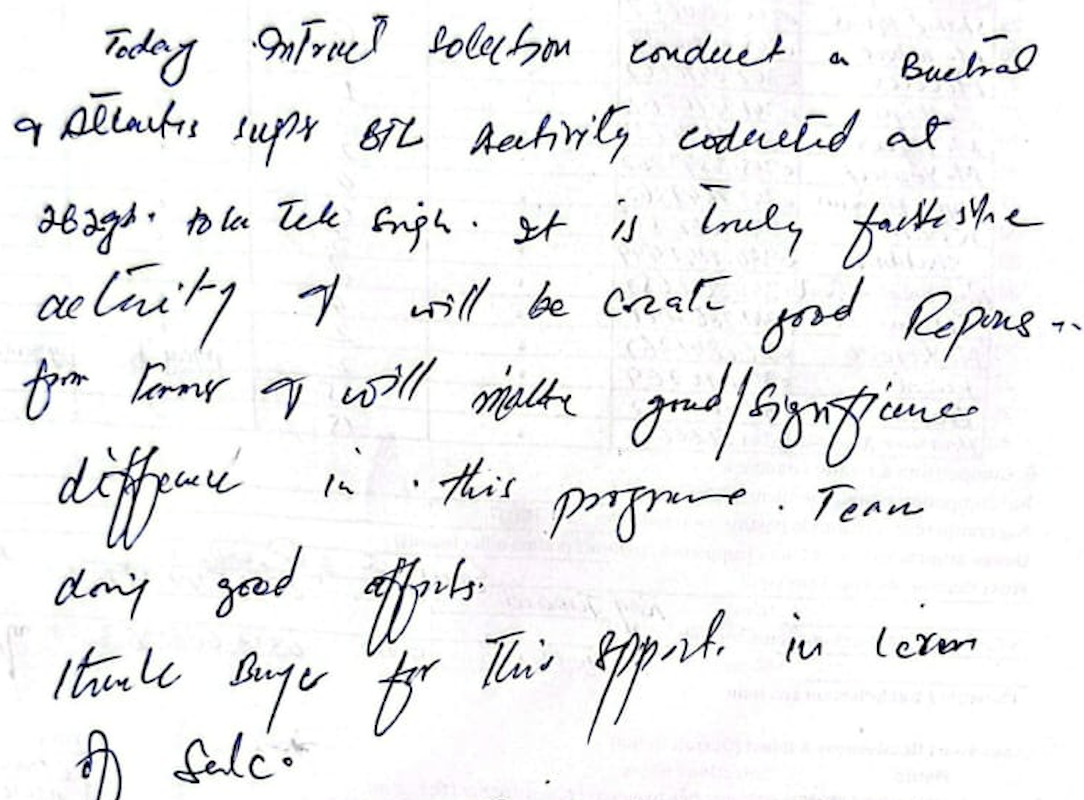 Today Intruct solection conduct a Buctral
& Atlantis super BTL Activity coducted at
Tek Singh. It is truly
activity & will be create good Repons
from farmer & will make good/Significance
differnce in this programe. Team
doing good efforts.
thank Bayer for This support. in
of Sale.